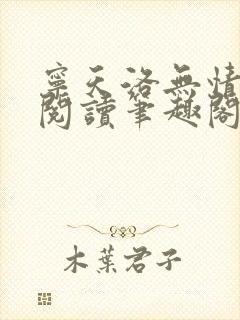 寧天洛無情
閱讀筆趣閣
木葉君子